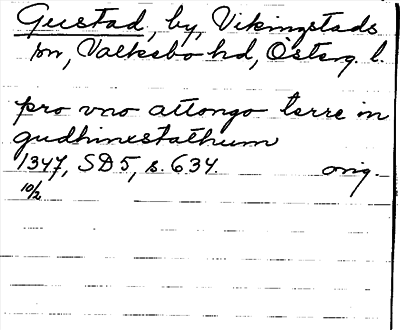 Gustad, by, Vikingstads
sn, Valkebo hd, Österg. l.
pro vno attongo terre in
gudhinxstathum
1347, SD5, s. 634. orig.
10/2